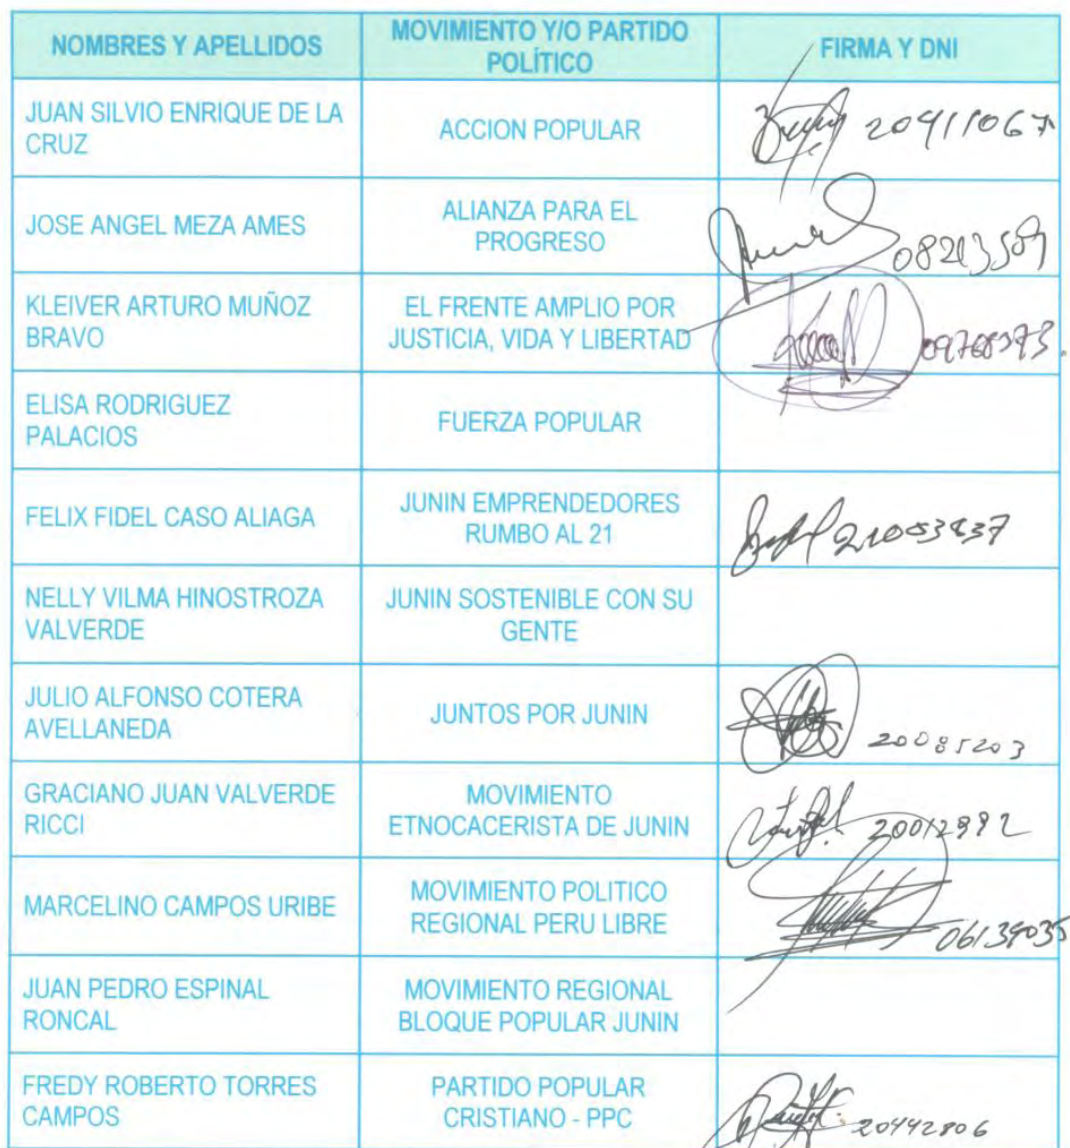 NOMBRES Y APELLIDOS
MOVIMIENTO Y/O PARTIDO
POLÍTICO
FIRMA Y DNI
JUAN SILVIO ENRIQUE DE LA
CRUZ
ACCION POPULAR
20411067
JOSE ANGEL MEZA AMES
ALIANZA PARA EL
PROGRESO
08213509
KLEIVER ARTURO MUÑOZ
BRAVO
EL FRENTE AMPLIO POR
JUSTICIA, VIDA Y LIBERTAD
ELISA RODRIGUEZ
PALACIOS
FUERZA POPULAR
FELIX FIDEL CASO ALIAGA
JUNIN EMPRENDEDORES
RUMBO AL 21
NELLY VILMA HINOSTROZA
VALVERDE
JUNIN SOSTENIBLE CON SU
GENTE
JULIO ALFONSO COTERA
AVELLANEDA
JUNTOS POR JUNIN
20085203
GRACIANO JUAN VALVERDE
RICCI
MOVIMIENTO
ETNOCACERISTA DE JUNIN
20012992
MARCELINO CAMPOS URIBE
MOVIMIENTO POLITICO
REGIONAL PERU LIBRE
06139035
JUAN PEDRO ESPINAL
RONCAL
MOVIMIENTO REGIONAL
BLOQUE POPULAR JUNIN
FREDY ROBERTO TORRES
CAMPOS
PARTIDO POPULAR
CRISTIANO - PPC
20442806